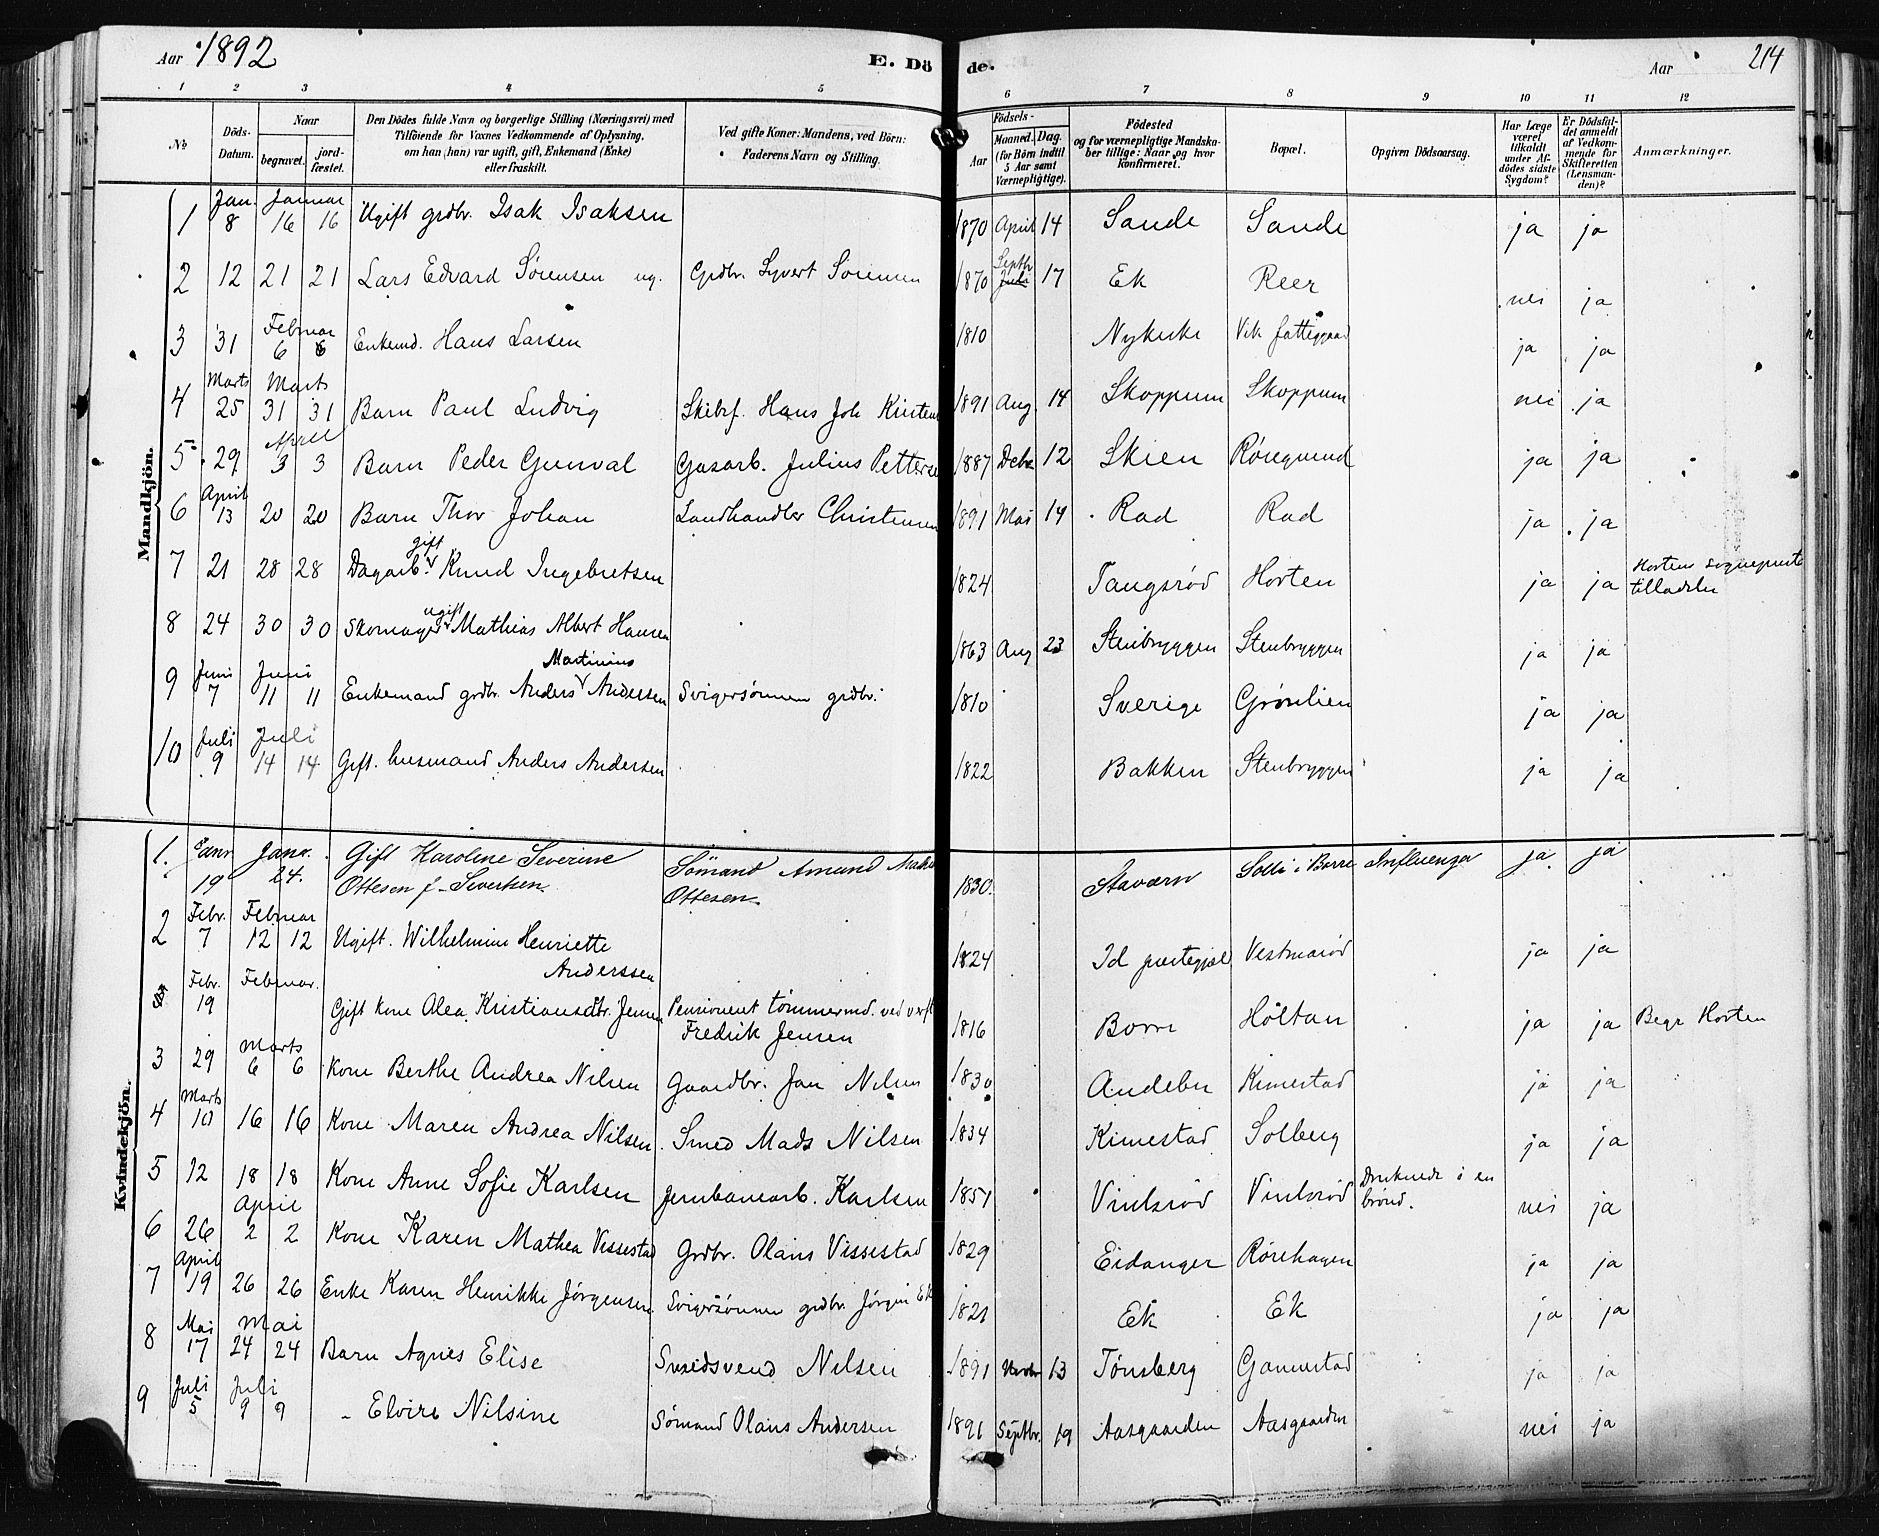 Aar 1892
E. Dö de.
Aar
214
1 2 3 4 5 6 7 8 9 10 11 12
No
Döds-Datum.
Naar
begravet.
jord-fæstet.
Den Dödes fulde Navn og borgerlige Stilling (Næringsvei) med
Tilföiende for Voxnes Vedkommende af Oplysning,
om han (hun) var ugift, gift, Enkemand (Enke)
eller fraskilt.
Ved gifte Koner: Mandens, ved Börn:
Faderens Navn og Stilling.
Födsels-
Aar
Maaned.
Dag.
(for Börn indtil
5 Aar samt
Værnepligtige).
Födested
og for værnepligtige Mandska-
ber tillige: Naar og hvor
konfirmeret.
Bopæl.
Opgiven Dödsaarsag.
Har Læge
været
tilkaldt
under Af-
dödes sidste
Sygdom?
Er Dödsfal-
det anmeldt
af Vedkom-
mende for
Skifteretten
(Lensman-
den)?
Anmærkninger.
Mandkjön.
1 Jan. 8 Januar 16 16 Ugift grdbr. Isak Isaksen 1870 April 14 Sande Sande ja ja
2 12 21 21 Lars Edvard Sørensen ug. Grdbr. Syvert Sørensen 1870 Septbr 17 Ek Reer nei ja
3 31 Februar 6 6 Enkemd. Hans Larsen 1810 Nykirke Vik fattiggaard ja ja
4 Marts 25 Marts 31 31 Barn Paul Ludvig Skibsf. Hans Joh 1891 Aug. 14 Skoppum Skoppum nei ja
5 29 April 3 3 Barn Peder Gunval Julius 1887 Debr 12 Skien ja ja
6 April 13 20 20 Barn Thor Johan Landhandler Christensen 1891 Mai 14 Rad Rad ja ja
7 21 28 28 Dagarb. gift Knud Ingebretsen 1824 Tangsrød Horten ja ja Hortens
8 24 30 30 Skomager ugift Mathias Albert Hansen 1863 Aug 23 Stenbryggen Stenbryggen ja ja
9 Juni 7 Juni 11 11 Enkemand grdbr. Anders Martinius Andersen Svigersønnen grdbr. 1810 Sverige Grønlien ja ja
10 Juli 9 Juli 14 14 Gift. husmand Anders Andersen 1822 Bakken Stenbryggen ja ja
Kvindekjön.
1. Janr 19 Janr. 24. Gift Karoline Severine
Ottesen f. Sivertsen Sömand Amund
Ottesen 1830. Staværn Solli i Borre Influenza ja ja
2 Febr. 7 Februar 12 12 Ugift. Wilhelmine Henriette
Anderssen 1824 Id præstegjæld Vestmarød ja ja
Febr. 19 Februar. Gift kone Alea Kristiansdtr. Jensen Pensioneret tømmermd. ved verft
Fredrik Jensen 1816 Borre Holtan ja ja Begr Horten
3 29 Marts 6 6 Kone Berthe Andrea Nilsen Gaardbr. Jan Nilsen 1830 Andebu Kimestad ja ja
4 Marts 10 16 16 Kone Maren Andrea Nilsen Smed Mads Nilsen 1834 Kimestad Solberg ja ja
5 12 18 18 Kone Anne Sofie Karlsen Jernbanearb. Karlsen 1851 Vinlsrød Vinlsrød Druknede i en
brønd. nei ja
6 26 April 2 2 Kone Karen Mathea Vissestad Grdbr. Olaus Vissestad 1829 Eidanger Rørehagen ja ja
7 April 19 26 26 Enke Karen Henrikke Jørgensen Svigersønnen grdbr. Jørgen Ek 1821 Ek Ek ja ja
8 Mai 17 Mai 24 24 Barn Agnes Elise Smedsvend Nilsen 1891 13 Tønsberg Gannestad ja ja
9 Juli 5 Juli 9 9 - Elvire Nilsine Sømand Olaus Andersen 1891 Septbr. 19 Aasgaarden Aasgaarden nei ja